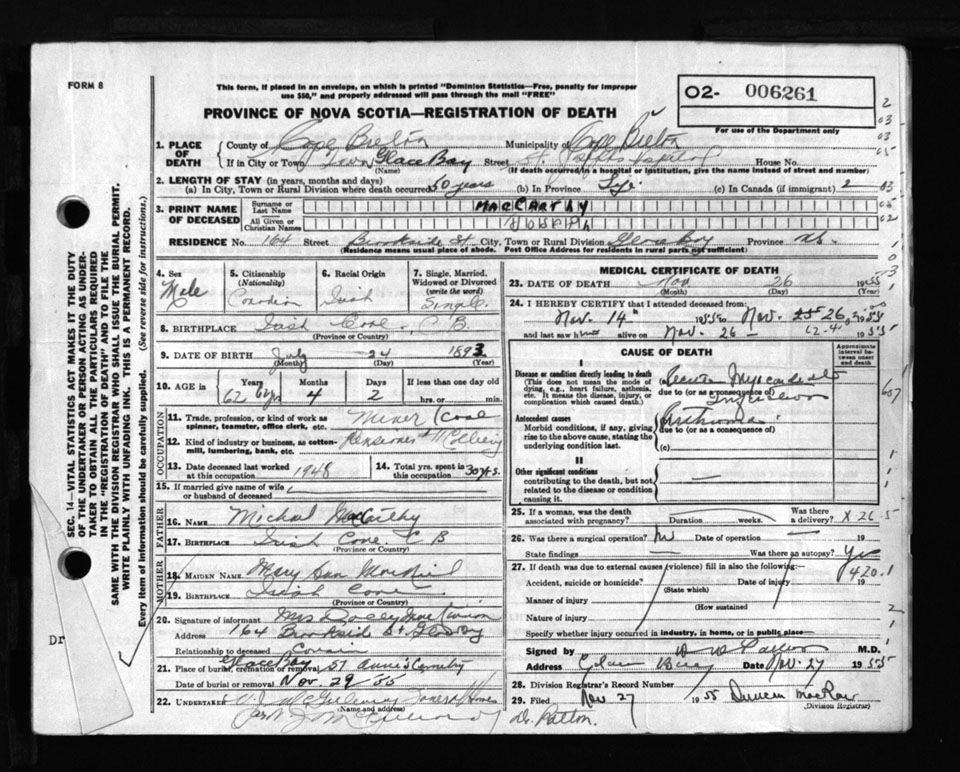 FORM 8
This form, if placed in an envelope, on which is printed "Dominion Statistics—Free, penalty for improper
use $50," and properly addressed will pass through the mail "FREE"
O2- 006261
For use of the Department only
PROVINCE OF NOVA SCOTIA—REGISTRATION OF DEATH
1. PLACE OF DEATH
County of Cape Breton Municipality of Cape Breton
If in City or Town Town Glace Bay (Name) Street St. House No.
(If death occurred in a hospital or institution, give the name instead of street and number)
2. LENGTH OF STAY (in years, months and days)
(a) In City, Town or Rural Division where death occurred 50 years (b) In Province Life (c) In Canada (if immigrant)
3. PRINT NAME OF DECEASED
Surname or Last Name MacCARTHY
All Given or Christian Names
RESIDENCE No. 164 Street Brookside St. City, Town or Rural Division Glace Bay Province N.S.
(Residence means usual place of abode. Post Office Address for residents in rural parts not sufficient)
4. Sex Male
5. Citizenship (Nationality) Canadian
6. Racial Origin Irish
7. Single, Married, Widowed or Divorced (write the word) Single
8. BIRTHPLACE Irish Cove C. B.
(Province or Country)
9. DATE OF BIRTH July (Month) 24 (Day) 1893 (Year)
10. AGE in Years 62 Months 4 Days 2 If less than one day old hrs. or min.
OCCUPATION
11. Trade, profession, or kind of work as spinner, teamster, office clerk, etc. Miner (Coal
12. Kind of industry or business, as cotton-mill, lumbering, bank, etc. Colliery
13. Date deceased last worked at this occupation 1948
14. Total yrs. spent in this occupation 30 yrs.
15. If married give name of wife or husband of deceased
FATHER
16. NAME Michael MacCarthy
17. BIRTHPLACE Irish Cove C B
(Province or Country)
MOTHER
18. MAIDEN NAME Mary Ann
19. BIRTHPLACE Irish Cove
(Province or Country)
20. Signature of informant Mrs
Address 164 Brookside St Gl Bay
Relationship to deceased Cousin
21. Place of burial, cremation or removal Glace Bay St Anne's Cemetery
Date of burial or removal Nov. 29 - 55
22. UNDERTAKER
(Name and address)
MEDICAL CERTIFICATE OF DEATH
23. DATE OF DEATH Nov (Month) 26 (Day) 1955
24. I HEREBY CERTIFY that I attended deceased from:
Nov. 14 1955 to Nov. 26 1955
and last saw him alive on Nov. 26 - 1955
CAUSE OF DEATH
Approximate interval between onset and death
I
Disease or condition directly leading to death
(This does not mean the mode of dying, e.g., heart failure, asthenia, etc. It means the disease, injury, or complication which caused death.)
Acute Myocardial
due to (or as a consequence of) Infarction
Antecedent causes
Morbid conditions, if any, giving rise to the above cause, stating the underlying condition last.
due to (or as a consequence of)
(c)
II
Other significant conditions
contributing to the death, but not related to the disease or condition causing it.
25. If a woman, was the death associated with pregnancy? Duration weeks. Was there a delivery? X 26-5
26. Was there a surgical operation? N Date of operation —
State findings — Was there an autopsy? Yes
27. If death was due to external causes (violence) fill in also the following:—
420.1
Accident, suicide or homicide? (State which) Date of injury 19
Manner of injury (How sustained)
Nature of injury
Specify whether injury occurred in industry, in home, or in public place
Signed by M.D.
Address Glace Bay Date Nov. 27 1955
28. Division Registrar's Record Number
29. Filed Nov 27 1955 Duncan MacRae
(Division Registrar)
Dr. Patton.
SEC. 14—VITAL STATISTICS ACT MAKES IT THE DUTY
OF THE UNDERTAKER OR PERSON ACTING AS UNDER-
TAKER TO OBTAIN ALL THE PARTICULARS REQUIRED
IN THE "REGISTRATION OF DEATH" AND TO FILE THE
SAME WITH THE DIVISION REGISTRAR WHO SHALL ISSUE THE BURIAL PERMIT.
WRITE PLAINLY WITH UNFADING INK. THIS IS A PERMANENT RECORD.
Every item of information should be carefully supplied. (See reverse side for instructions.)
Dr